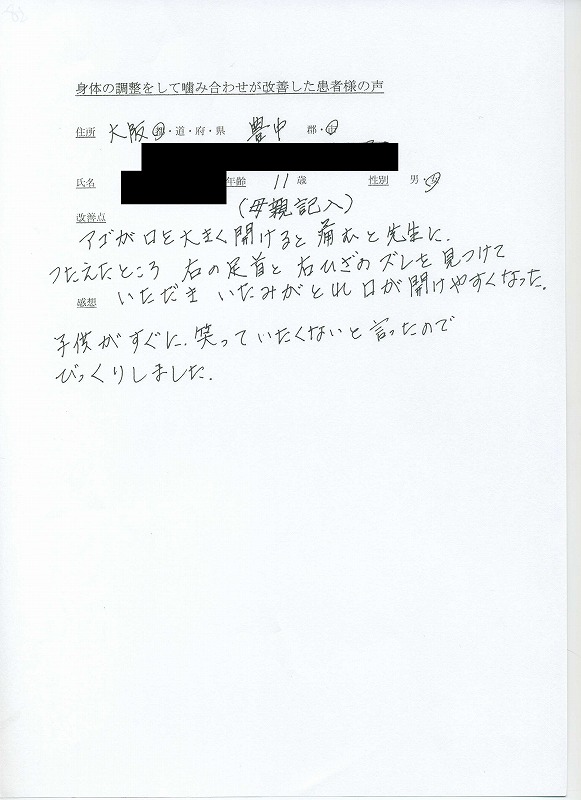 身体の調整をして噛み合わせが改善した患者様の声
住所 大阪 都・道・府・県 豊中 郡・市
氏名 年齢 11 歳 性別 男・女
(母親記入)
改善点
アゴが口を大きく開けると痛むと先生に.
つたえたところ 右の足首と右ひざのズレを見つけて
感想 いただき いたみがとれ 口が開けやすくなった.
子供がすぐに.笑っていたくないと言ったので
びっくりしました.